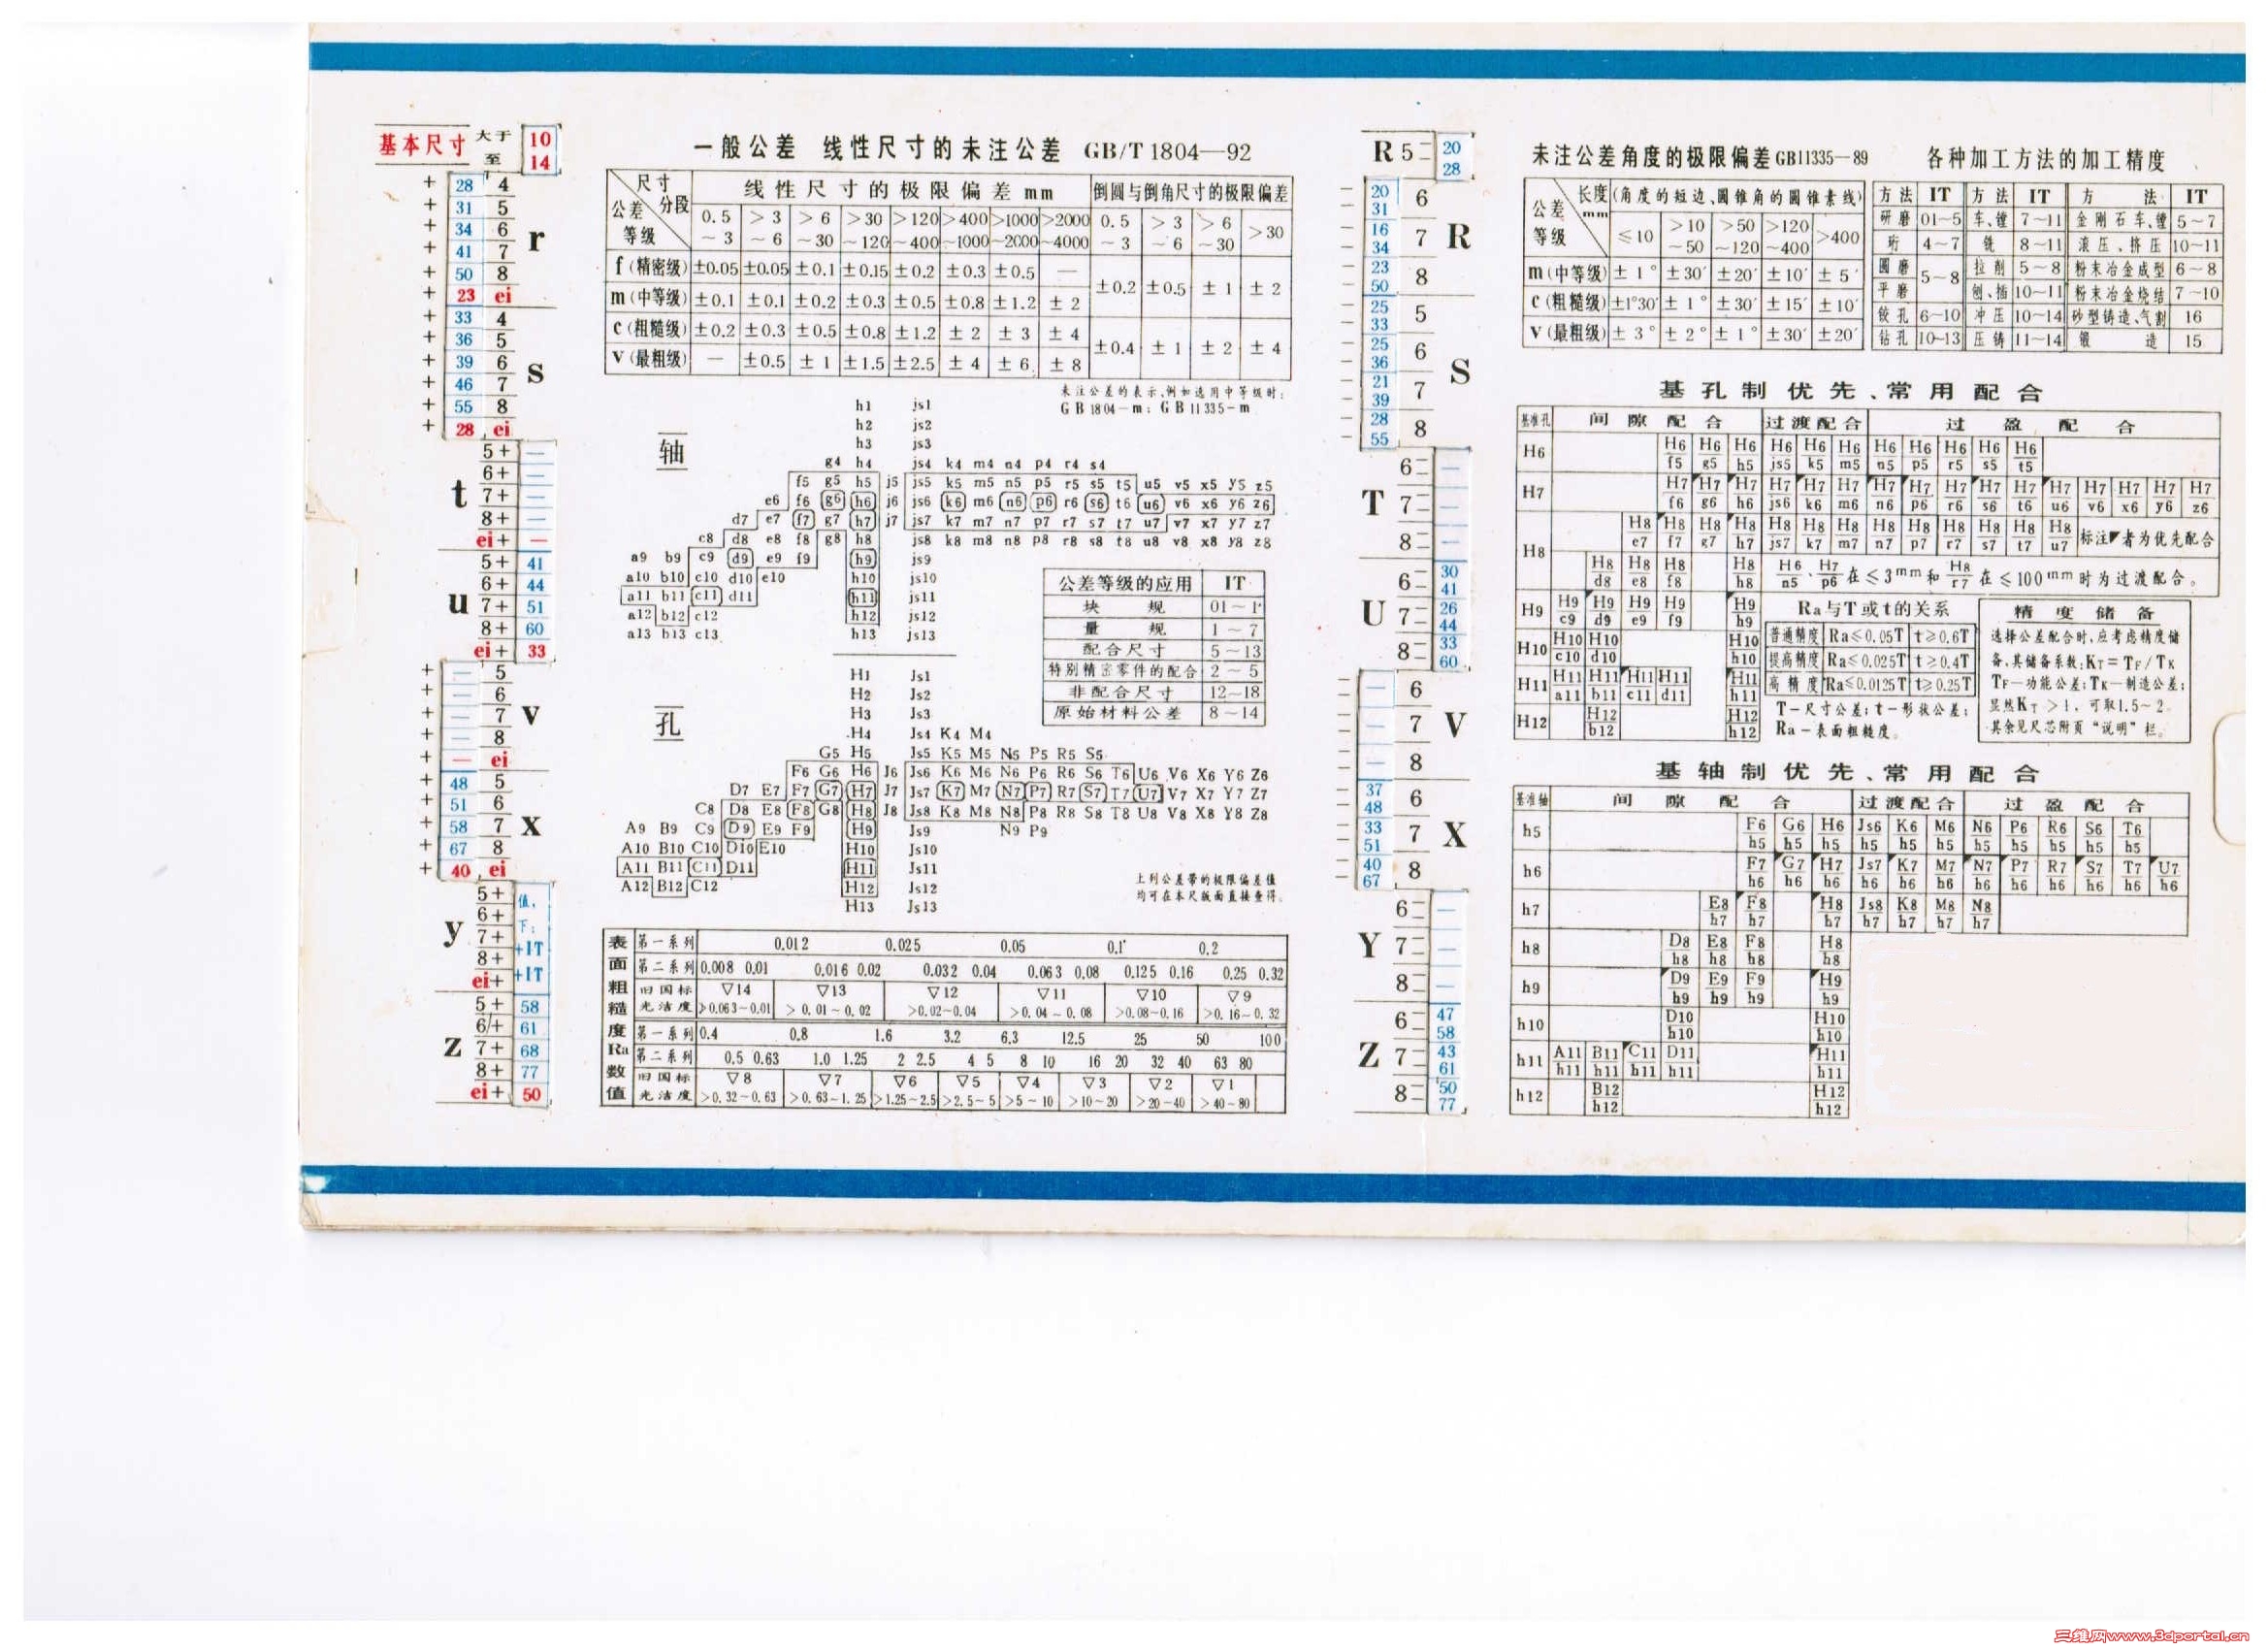 基本尺寸 大于 至 10 14
+ 28 4
+ 31 5
+ 34 6 r
+ 41 7
+ 50 8
+ 23 ei
+ 33 4
+ 36 5
+ 39 6 s
+ 46 7
+ 55 8
+ 28 ei
5+ —
6+ —
t 7+ —
8+ —
ei+ —
5+ 41
6+ 44
u 7+ 51
8+ 60
ei+ 33
+ — 5
+ — 6
+ — 7 v
+ — 8
+ — ei
+ 48 5
+ 51 6
+ 58 7 x
+ 67 8
+ 40 ei
5+ 值,
6+ 下:
y 7+ +IT
8+
ei+ +IT
5+ 58
6+ 61
z 7+ 68
8+ 77
ei+ 50
一般公差 线性尺寸的未注公差 GB/T 1804—92
尺寸分段 公差等级 线性尺寸的极限偏差mm 倒圆与倒角尺寸的极限偏差
0.5~3 >3~6 >6~30 >30~120 >120~400 >400~1000 >1000~2000 >2000~4000 0.5~3 >3~6 >6~30 >30
f(精密级) ±0.05 ±0.05 ±0.1 ±0.15 ±0.2 ±0.3 ±0.5 — ±0.2 ±0.5 ±1 ±2
m(中等级) ±0.1 ±0.1 ±0.2 ±0.3 ±0.5 ±0.8 ±1.2 ±2
c(粗糙级) ±0.2 ±0.3 ±0.5 ±0.8 ±1.2 ±2 ±3 ±4 ±0.4 ±1 ±2 ±4
v(最粗级) — ±0.5 ±1 ±1.5 ±2.5 ±4 ±6 ±8
未注公差的表示,例如选用中等级时:
GB1804-m; GB11335-m
轴
h1 js1
h2 js2
h3 js3
g4 h4 js4 k4 m4 n4 p4 r4 s4
f5 g5 h5 j5 js5 k5 m5 n5 p5 r5 s5 t5 u5 v5 x5 y5 z5
e6 f6 g6 h6 j6 js6 k6 m6 n6 p6 r6 s6 t6 u6 v6 x6 y6 z6
d7 e7 f7 g7 h7 j7 js7 k7 m7 n7 p7 r7 s7 t7 u7 v7 x7 y7 z7
c8 d8 e8 f8 g8 h8 js8 k8 m8 n8 p8 r8 s8 t8 u8 v8 x8 y8 z8
a9 b9 c9 d9 e9 f9 h9 js9
a10 b10 c10 d10 e10 h10 js10
a11 b11 c11 d11 h11 js11
a12 b12 c12 h12 js12
a13 b13 c13 h13 js13
公差等级的应用 IT
块规 01~1
量规 1~7
配合尺寸 5~13
特别精密零件的配合 2~5
非配合尺寸 12~18
原始材料公差 8~14
孔
H1 Js1
H2 Js2
H3 Js3
H4 Js4 K4 M4
G5 H5 Js5 K5 M5 N5 P5 R5 S5
F6 G6 H6 J6 Js6 K6 M6 N6 P6 R6 S6 T6 U6 V6 X6 Y6 Z6
D7 E7 F7 G7 H7 J7 Js7 K7 M7 N7 P7 R7 S7 T7 U7 V7 X7 Y7 Z7
C8 D8 E8 F8 G8 H8 J8 Js8 K8 M8 N8 P8 R8 S8 T8 U8 V8 X8 Y8 Z8
A9 B9 C9 D9 E9 F9 H9 Js9 N9 P9
A10 B10 C10 D10 E10 H10 Js10
A11 B11 C11 D11 H11 Js11
A12 B12 C12 H12 Js12
H13 Js13
上列公差带的极限偏差值
均可在本尺版面直接查得。
表面粗糙度Ra数值
第一系列 0.012 0.025 0.05 0.1 0.2
第二系列 0.008 0.01 0.016 0.02 0.032 0.04 0.063 0.08 0.125 0.16 0.25 0.32
旧国标 ▽14 ▽13 ▽12 ▽11 ▽10 ▽9
光洁度 >0.063~0.01 >0.01~0.02 >0.02~0.04 >0.04~0.08 >0.08~0.16 >0.16~0.32
第一系列 0.4 0.8 1.6 3.2 6.3 12.5 25 50 100
第二系列 0.5 0.63 1.0 1.25 2 2.5 4 5 8 10 16 20 32 40 63 80
旧国标 ▽8 ▽7 ▽6 ▽5 ▽4 ▽3 ▽2 ▽1
光洁度 >0.32~0.63 >0.63~1.25 >1.25~2.5 >2.5~5 >5~10 >10~20 >20~40 >40~80
R 5 — 20 28
— 20 31 6
— 16 34 7 R
— 23 50 8
— 25 33 5
— 25 36 6 S
— 21 39 7
— 28 55 8
6 —
T 7 —
8 —
6 — 30 41
U 7 — 26 44
8 — 33 60
— 6
— 7 V
— 8
— 37 48 6
— 33 51 7 X
— 40 67 8
6 —
Y 7 —
8 —
6 — 47 58
Z 7 — 43 61
8 — 50 77
未注公差角度的极限偏差GB11335—89
公差等级 长度mm (角度的短边、圆锥角的圆锥素线)
≤10 >10~50 >50~120 >120~400 >400
m(中等级) ±1° ±30′ ±20′ ±10′ ±5′
c(粗糙级) ±1°30′ ±1° ±30′ ±15′ ±10′
v(最粗级) ±3° ±2° ±1° ±30′ ±20′
各种加工方法的加工精度
方法 IT 方法 IT 方法 IT
研磨 01~5 车、镗 7~11 金刚石车、镗 5~7
珩 4~7 铣 8~11 滚压、挤压 10~11
圆磨 5~8 拉削 5~8 粉末冶金成型 6~8
平磨 刨、插 10~11 粉末冶金烧结 7~10
铰孔 6~10 冲压 10~14 砂型铸造、气割 16
钻孔 10~13 压铸 11~14 锻造 15
基孔制优先、常用配合
基准孔 间隙配合 过渡配合 过盈配合
H6 H6/f5 H6/g5 H6/h5 H6/js5 H6/k5 H6/m5 H6/n5 H6/p5 H6/r5 H6/s5 H6/t5
H7 H7/f6 H7/g6 H7/h6 H7/js6 H7/k6 H7/m6 H7/n6 H7/p6 H7/r6 H7/s6 H7/t6 H7/u6 H7/v6 H7/x6 H7/y6 H7/z6
H8 H8/e7 H8/f7 H8/g7 H8/h7 H8/js7 H8/k7 H8/m7 H8/n7 H8/p7 H8/r7 H8/s7 H8/t7 H8/u7 标注◤者为优先配合
H8/d8 H8/e8 H8/f8 H8/h8 H6/n5、H7/p6在≤3mm和H8/r7在≤100mm时为过渡配合。
H9 H9/c9 H9/d9 H9/e9 H9/f9 H9/h9
H10 H10/c10 H10/d10 H10/h10
H11 H11/a11 H11/b11 H11/c11 H11/d11 H11/h11
H12 H12/b12 H12/h12
Ra与T或t的关系
普通精度 Ra≤0.05T t≥0.6T
提高精度 Ra≤0.025T t≥0.4T
高精度 Ra≤0.0125T t≥0.25T
T—尺寸公差;t—形状公差;
Ra—表面粗糙度。
精度储备
选择公差配合时,应考虑精度储
备,其储备系数:KT=TF/TK
TF—功能公差;TK—制造公差;
显然KT>1,可取1.5~2。
其余见尺芯附页“说明”栏。
基轴制优先、常用配合
基准轴 间隙配合 过渡配合 过盈配合
h5 F6/h5 G6/h5 H6/h5 Js6/h5 K6/h5 M6/h5 N6/h5 P6/h5 R6/h5 S6/h5 T6/h5
h6 F7/h6 G7/h6 H7/h6 Js7/h6 K7/h6 M7/h6 N7/h6 P7/h6 R7/h6 S7/h6 T7/h6 U7/h6
h7 E8/h7 F8/h7 H8/h7 Js8/h7 K8/h7 M8/h7 N8/h7
h8 D8/h8 E8/h8 F8/h8 H8/h8
h9 D9/h9 E9/h9 F9/h9 H9/h9
h10 D10/h10 H10/h10
h11 A11/h11 B11/h11 C11/h11 D11/h11 H11/h11
h12 B12/h12 H12/h12
三维网www.3dportal.cn